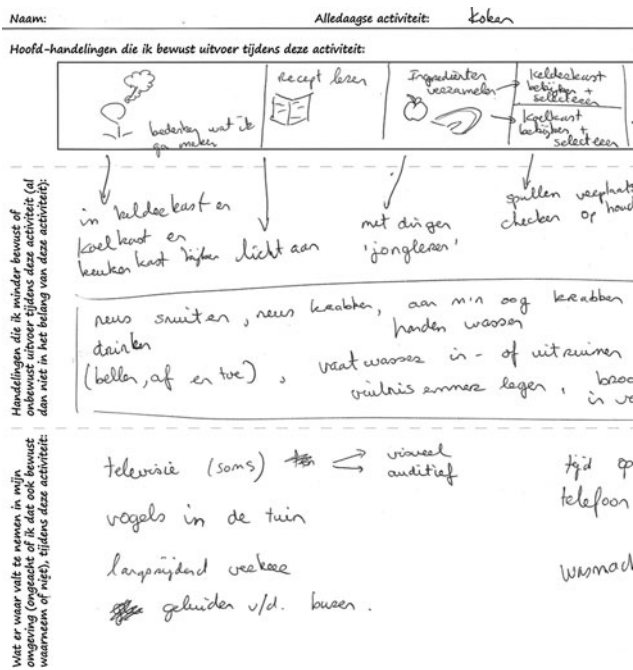 Naam:
Alledaagse activiteit: Koken
Hoofd-handelingen die ik bewust uitvoer tijdens deze activiteit:
bedenken wat ik
ga maken
Recept lezen
Ingrediënten
verzamelen
kelderkast
bekijken +
selecteer
koelkast
bekijken +
selecteer
Handelingen die ik minder bewust of
onbewust uitvoer tijdens deze activiteit (al
dan niet in het belang van deze activiteit):
in kelderkast en
koelkast en
keukenkast kijken
licht aan
met dingen
'jongleren'
spullen verplaats
checken op houd
neus snuiten, neus krabben, aan m'n oog krabben
drinken
handen wassen
(bellen, af en toe), vaatwasser in- of uitruimen
vuilnis emmer legen, broo
in v
Wat er waar valt te nemen in mijn
omgeving (ongeacht of ik dat ook bewust
waarneem of niet), tijdens deze activiteit:
televisie (soms)
visueel
auditief
vogels in de tuin
langsrijdend verkeer
geluiden v/d. buren.
tijd op
telefoon
wasmach